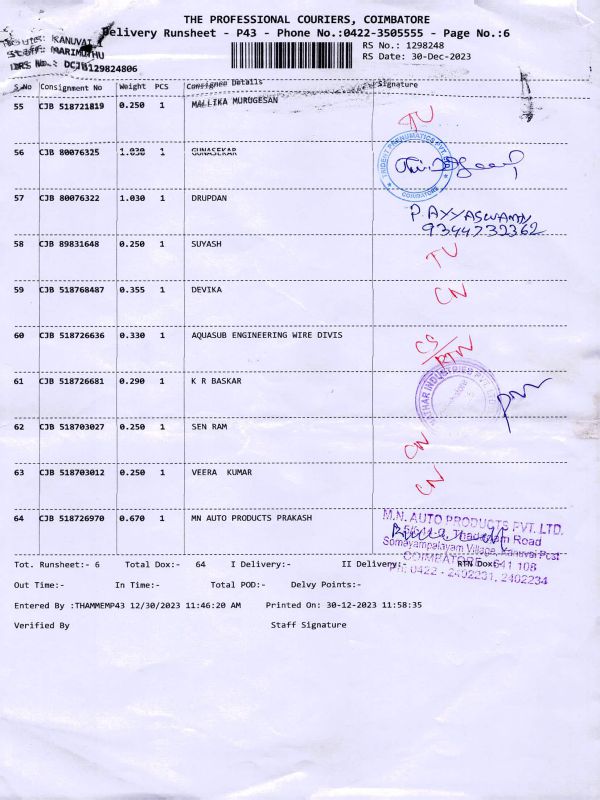 THE PROFESSIONAL COURIERS, COIMBATORE
Delivery Runsheet - P43 - Phone No.:0422-3505555 - Page No.:6
KANUVAI
RS No.: 1298248
Staff: MARIMUTHU
RS Date: 30-Dec-2023
DRS No.: DCJB129824806
S.No Consignment No Weight PCS Consignee Details Signature
55 CJB 518721819 0.250 1 MALLIKA MURUGESAN TU
56 CJB 80076325 1.030 1 GUNASEKAR
TRIDENT PNEUMATICS PVT. LTD
COIMBATORE
57 CJB 80076322 1.030 1 DRUPDAN P. AYYASWAMY
9344732362
58 CJB 89831648 0.250 1 SUYASH TU
59 CJB 518768487 0.355 1 DEVIKA CN
60 CJB 518726636 0.330 1 AQUASUB ENGINEERING WIRE DIVIS CS/RTN
61 CJB 518726681 0.290 1 K R BASKAR
INDUSTRIES PVT LTD
62 CJB 518703027 0.250 1 SEN RAM CN
63 CJB 518703012 0.250 1 VEERA KUMAR CN
64 CJB 518726970 0.670 1 MN AUTO PRODUCTS PRAKASH
M.N. AUTO PRODUCTS PVT. LTD.
Thadagam Road
Somayampalayam Village, Kanuvai Post
COIMBATORE - 641 108
PH: 0422 - 2402231, 2402234
Tot. Runsheet:- 6 Total Dox:- 64 I Delivery:- II Delivery:- RTN Dox:-
Out Time:- In Time:- Total POD:- Delvy Points:-
Entered By :THAMMEMP43 12/30/2023 11:46:20 AM Printed On: 30-12-2023 11:58:35
Verified By Staff Signature